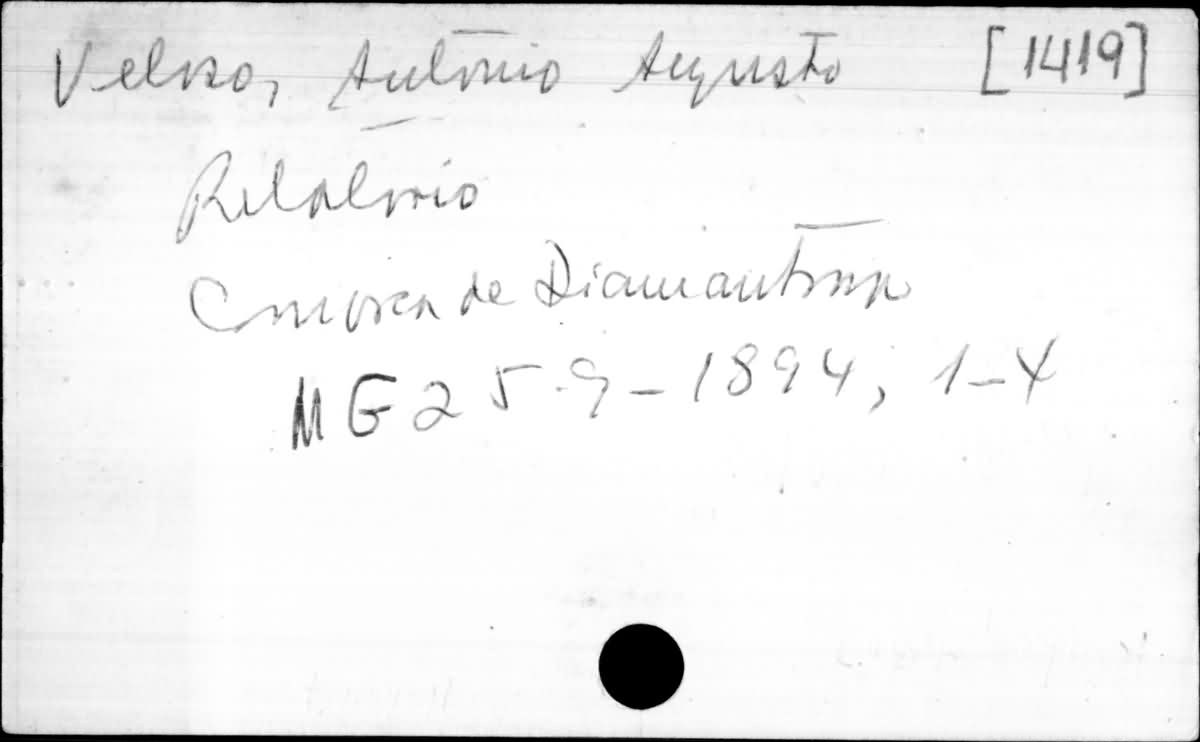 Veloso, Antonio Augusto [1419]
Relatorio
Comarca de Diamantina
MG 25-9-1894, 1-4